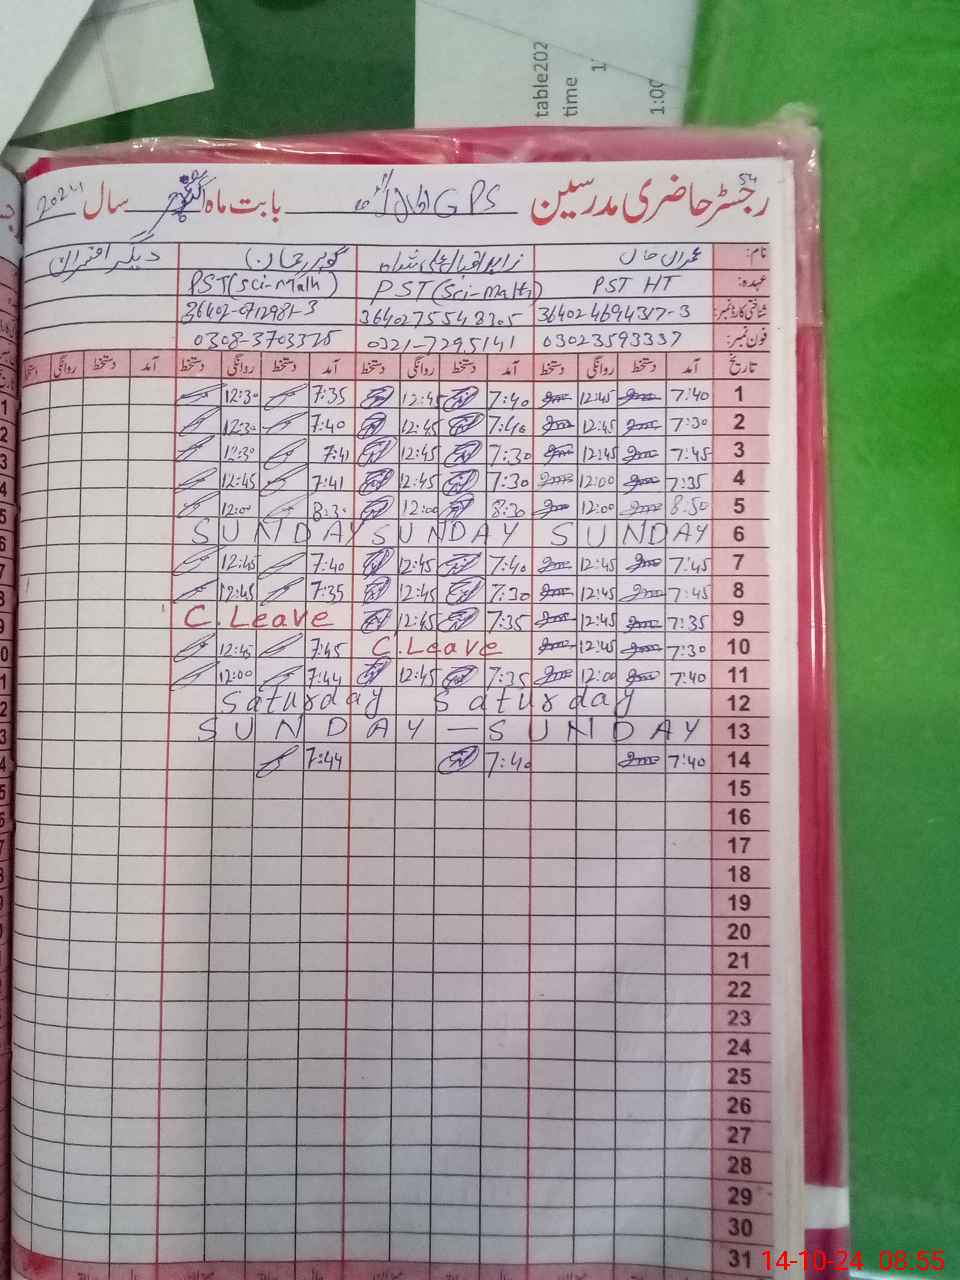 table202
time
1:00
54
رجسٹر حاضری مدرسین GPS بابت ماہ اکتوبر سال 2024
نام: عمران خان زاہد اقبال علی شاہ گوہر رحمان دیگر افسران
عہدہ: PST HT PST(Sci-Math) PST(Sci-Math)
شناختی کارڈ نمبر: 36402-4694317-3 36402
فون نمبر: 03023593337 0321-7295141 0308-3703375
تاریخ آمد دستخط روانگی دستخط آمد دستخط روانگی دستخط آمد دستخط روانگی دستخط آمد دستخط روانگی دستخط
1 7:40 12:45 7:40 12:45 7:35 12:30
2 7:30 12:45 7:40 12:45 7:40 12:30
3 7:45 12:45 7:30 12:45 7:41 12:30
4 7:35 12:00 7:30 12:45 7:41 12:45
5 8:50 12:00 8:30 12:00 8:30 12:00
6 SUNDAY SUNDAY SUNDAY
7 7:45 12:45 7:40 12:45 7:40 12:45
8 7:45 12:45 7:30 12:45 7:35 12:45
9 7:35 12:45 7:35 12:45 C.Leave
10 7:30 12:45 C.Leave 7:45 12:45
11 7:40 12:00 7:35 12:45 7:44 12:00
12 Saturday Saturday
13 SUNDAY — SUNDAY
14 7:40 7:40 7:44
15
16
17
18
19
20
21
22
23
24
25
26
27
28
29
30
31
14-10-24 08:55